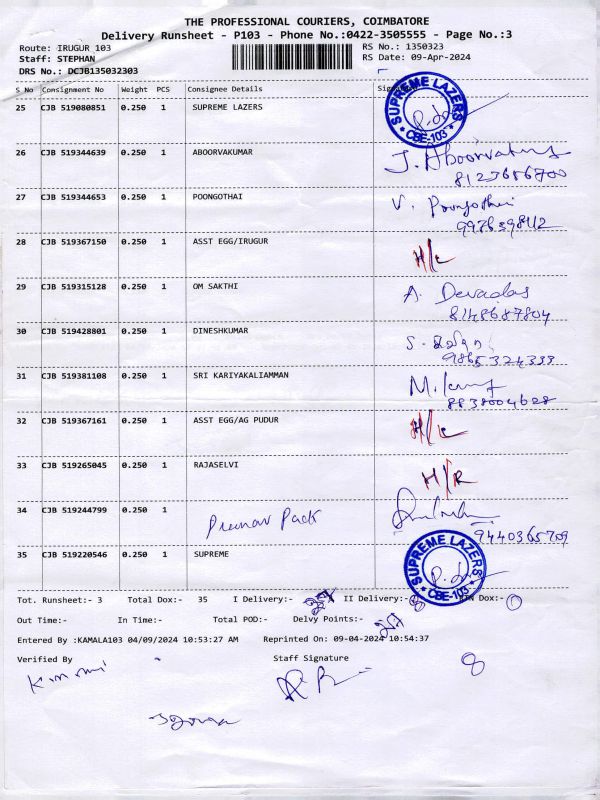 THE PROFESSIONAL COURIERS, COIMBATORE
Delivery Runsheet - P103 - Phone No.:0422-3505555 - Page No.:3
Route: IRUGUR_103 RS No.: 1350323
Staff: STEPHAN RS Date: 09-Apr-2024
DRS No.: DCJB135032303
S No Consignment No Weight PCS Consignee Details
25 CJB 519080851 0.250 1 SUPREME LAZERS SUPREME LAZERS * CBE-103 *
26 CJB 519344639 0.250 1 ABOORVAKUMAR J. Aboorvakumar
8123686700
27 CJB 519344653 0.250 1 POONGOTHAI V. Poongothai
28 CJB 519367150 0.250 1 ASST EGG/IRUGUR H/L
29 CJB 519315128 0.250 1 OM SAKTHI A. Devadas
8148687804
30 CJB 519428801 0.250 1 DINESHKUMAR
9865324333
31 CJB 519381108 0.250 1 SRI KARIYAKALIAMMAN
8838004628
32 CJB 519367161 0.250 1 ASST EGG/AG PUDUR H/L
33 CJB 519265045 0.250 1 RAJASELVI H/R
34 CJB 519244799 0.250 1 Pack
9440365709
35 CJB 519220546 0.250 1 SUPREME SUPREME LAZERS * CBE-103 *
Tot. Runsheet:- 3 Total Dox:- 35 I Delivery:- II Delivery:- Dox:- 0
Out Time:- In Time:- Total POD:- Delvy Points:-
Entered By :KAMALA103 04/09/2024 10:53:27 AM Reprinted On: 09-04-2024 10:54:37
Verified By Staff Signature
8